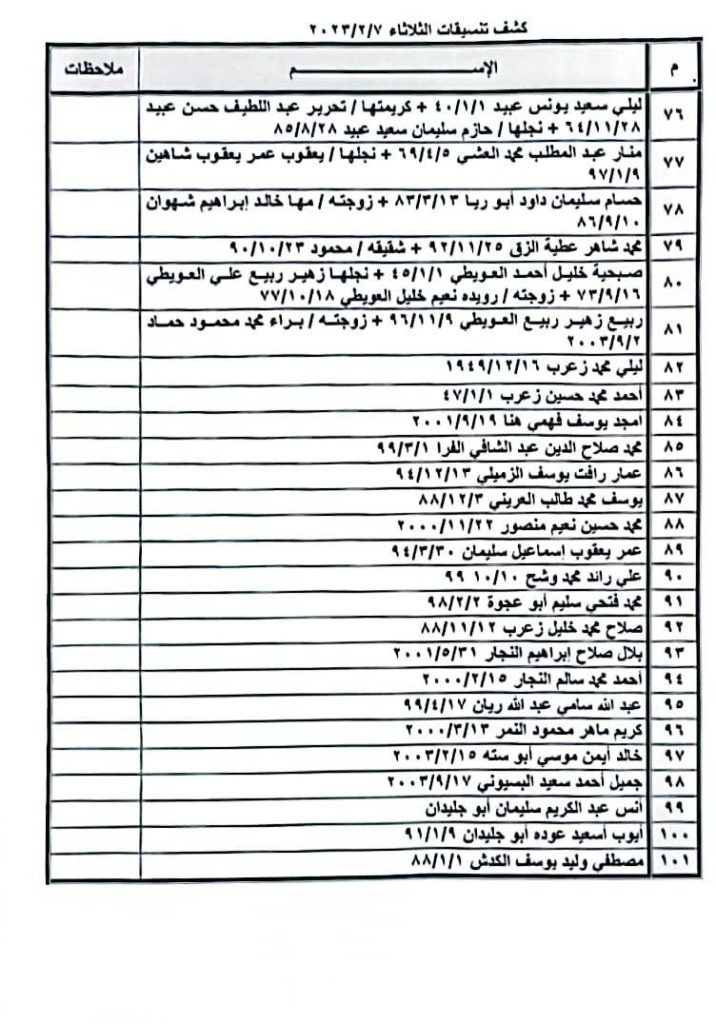 كشف تنسيقات الثلاثاء ٢٠٢٣/٢/٧
م الإســـــــم ملاحظات
٧٦ ليلي سعيد يونس عبيد ٤٠/١/١ + كريمتها / تحرير عبد اللطيف حسن عبيد
٦٤/١١/٢٨ + نجلها / حازم سليمان سعيد عبيد ٨٥/٨/٢٨
٧٧ منار عبد المطلب محمد العشي ٦٩/٤/٥ + نجلها / يعقوب عمر يعقوب شاهين
٩٧/١/٩
٧٨ حسام سليمان داود أبو ريا ٨٣/٣/١٣ + زوجته / مها خالد إبراهيم شهوان
٨٦/٩/١٠
٧٩ محمد شاهر عطية الزق ٩٢/١١/٢٥ + شقيقه / محمود ٩٠/١٠/٢٣
٨٠ صبحية خليل أحمد العويطي ٤٥/١/١ + نجلها زهير ربيع علي العويطي
٧٣/٩/١٦ + زوجته / رويده نعيم خليل العويطي ٧٧/١٠/١٨
٨١ ربيع زهير ربيع العويطي ٩٦/١١/٩ + زوجته / براء محمد محمود حماد
٢٠٠٣/٩/٢
٨٢ ليلي محمد زعرب ١٩٤٩/١٢/١٦
٨٣ أحمد محمد حسين زعرب ٤٧/١/١
٨٤ امجد يوسف فهمي هنا ٢٠٠١/٩/١٩
٨٥ محمد صلاح الدين عبد الشافي الفرا ٩٩/٣/١
٨٦ عمار رافت يوسف الزميلي ٩٤/١٢/١٣
٨٧ يوسف محمد طالب العريني ٨٨/١٢/٣
٨٨ محمد حسين نعيم منصور ٢٠٠٠/١١/٢٢
٨٩ عمر يعقوب إسماعيل سليمان ٩٤/٣/٣٠
٩٠ علي رائد محمد وشح ١٠/١٠ ٩٩
٩١ محمد فتحي سليم أبو عجوة ٩٨/٢/٢
٩٢ صلاح محمد خليل زعرب ٨٨/١١/١٢
٩٣ بلال صلاح إبراهيم النجار ٢٠٠١/٥/٣١
٩٤ أحمد محمد سالم النجار ٢٠٠٠/٢/١٥
٩٥ عبد الله سامي عبد الله ريان ٩٩/٤/١٧
٩٦ كريم ماهر محمود النمر ٢٠٠٠/٣/١٣
٩٧ خالد أيمن موسي أبو سته ٢٠٠٣/٢/١٥
٩٨ جميل أحمد سعيد البسيوني ٢٠٠٣/٩/١٧
٩٩ أنس عبد الكريم سليمان أبو جليدان
١٠٠ أيوب أسعيد عوده أبو جليدان ٩١/١/٩
١٠١ مصطفي وليد يوسف الكدش ٨٨/١/١